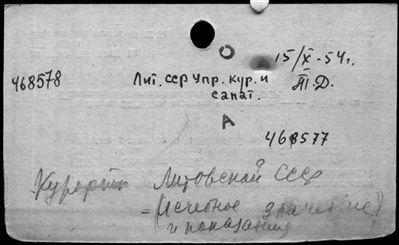 О
15/X-54г.
468578
Лит. ССР Упр. кур. и
санат.
Т.Д.
А
468577
Курорты Литовской ССР
(лечебное значение
и показания)